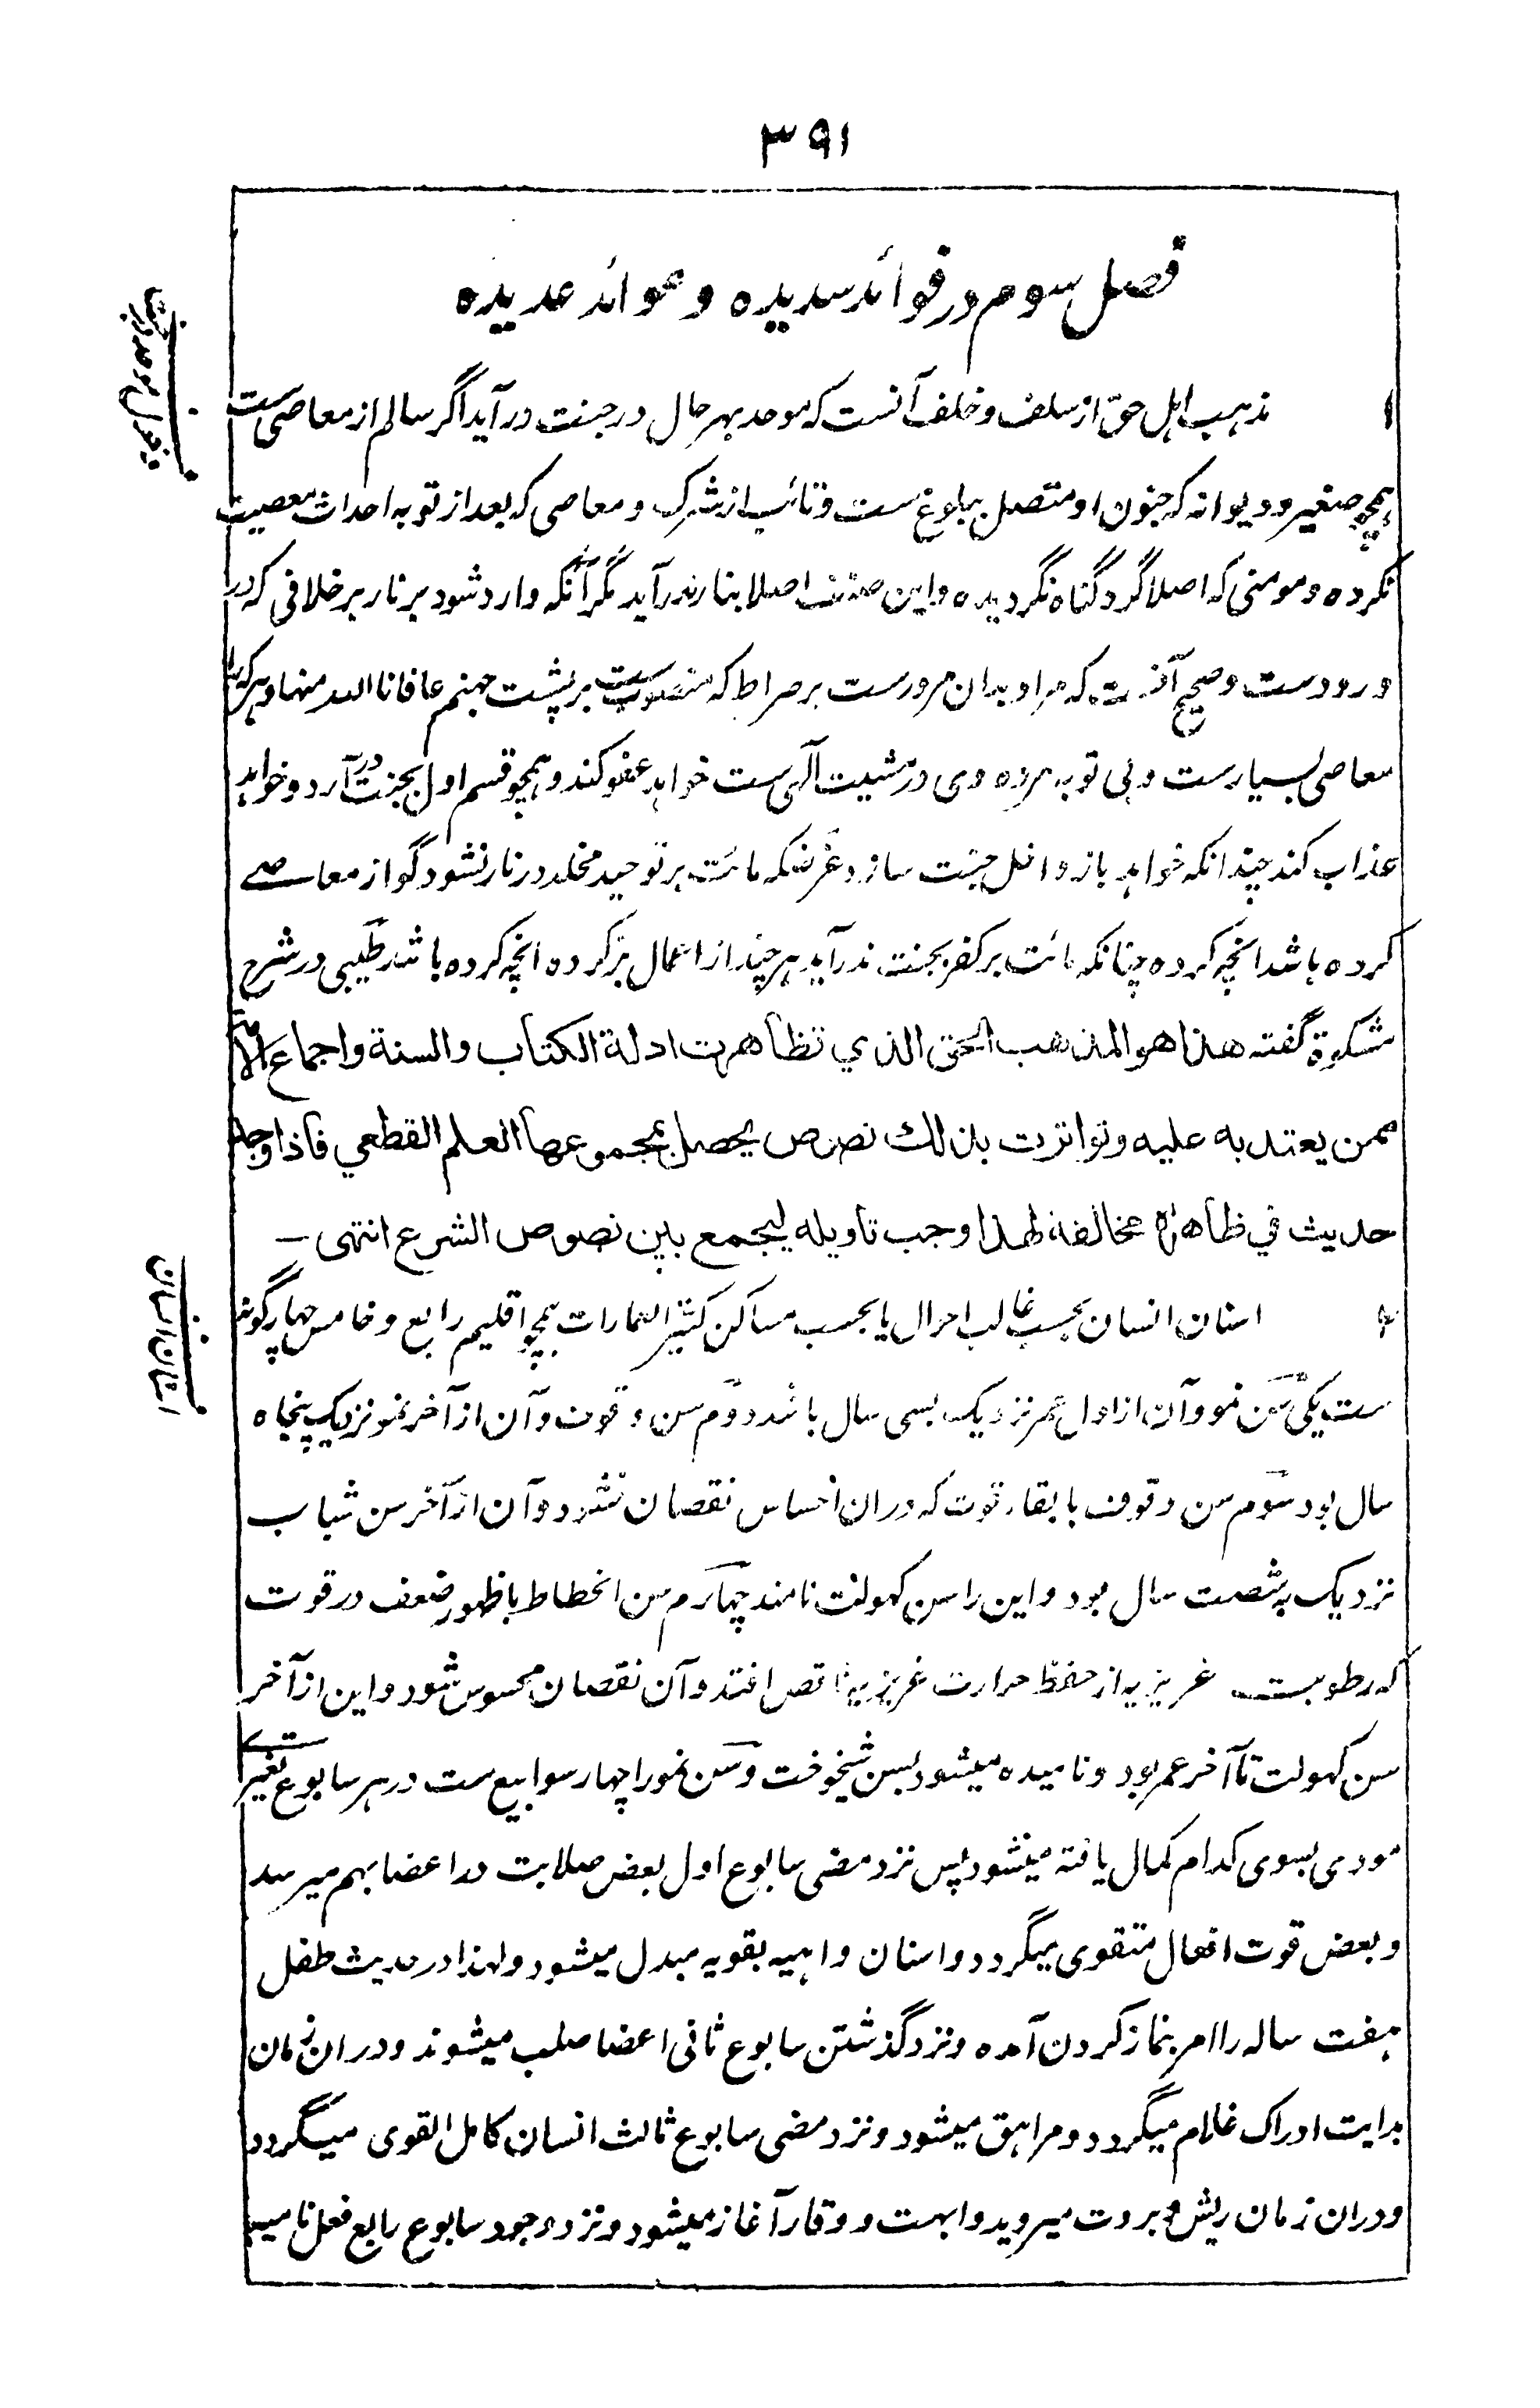 ۳۹۱
فصل سوم در فوائد سدیده و عوائد عدیده
۱ مذهب اهل حق از سلف و خلف آنست که موحد بهر حال در جنت در آید اگر سالم از معاصی ست
همچو صغیر و دیوانه که جنون او متصل ببلوغ ست و تائب از شرک و معاصی که بعد از توبه احداث معصیت
نکرده و مومنی که اصلا گرد گناه نگردیده و این صنف اصلا بنار ندر آید مگر آنکه وارد شود بر نار بر خلافی که در
ورودست و صحیح آنست که مراد بدان مرورست بر صراط که منصوب ست بر پشت جهنم عافانا الله منها و هر که را
معاصی بسیارست و بی توبه مرده وی در مشیت آلهی ست خواهد عفو کند و همچو قسم اول بجنت در آرد و خواهد
عذاب کند چندانکه خواهد باز داخل جنت سازد غرضکه مائت بر توحید مخلد در نار نشود گو از معاصی
کرده باشد انچه کرده چنانکه مائت بر کفر بجنت ندر آید هر چند از اعمال بر کرده انچه کرده باشد طیبی در شرح
مشکوة گفته هذا هو المذهب الحق الذي تظاهرت ادلة الكتاب والسنة واجماع الامة
ممن يعتد به عليه وتواترت بذلك نصوص يحصل بمجموعها العلم القطعي فاذا وجد
حديث في ظاهره مخالفة لهذا وجب تاويله ليجمع بين نصوص الشرع انتهى –
۲ اسنان انسان بحسب غالب احوال یا بحسب مساکن کثیر العمارات همچو اقلیم رابع و خامس چهار گونه
ست یکی سن نمو و آن از اول عمر نزدیک بسی سال باشد دوم سن وقوف و آن از آخر نمو نزدیک پنجاه
سال بود سوم سن وقوف با بقاء قوت که دران احساس نقصان نشود و آن از آخر سن شباب
نزدیک به شصت سال بود و این را سن کهولت نامند چهارم سن انحطاط با ظهور ضعف در قوت
که رطوبت غریزیه از حفظ حرارت غریزیه ناقص افتد و آن نقصان محسوس شود و این از آخر
سن کهولت تا آخر عمر بود و نامیده میشود بسن شیخوخت و سن نمو را چهار سوابیع ست در هر سابوع تغیر
مودی بسوی کدام کمال یافته میشود پس نزد مضی سابوع اول بعض صلابت در اعضا بهم میرسد
و بعض قوت افعال متقوی میگردد و اسنان واهیه بقویه مبدل میشود و لهذا در حدیث طفل
هفت ساله را امر بنماز کردن آمده و نزد گذشتن سابوع ثانی اعضا صلب میشوند و دران زمان
بدایت ادراک غلام میگردد و مراهق میشود و نزد مضی سابوع ثالث انسان کامل القوی میگردد
و دران زمان ریش و بروت میروید و ابهت و وقار آغاز میشود و نزد وجود سابوع رابع فعل نامیه
اسنان انسان